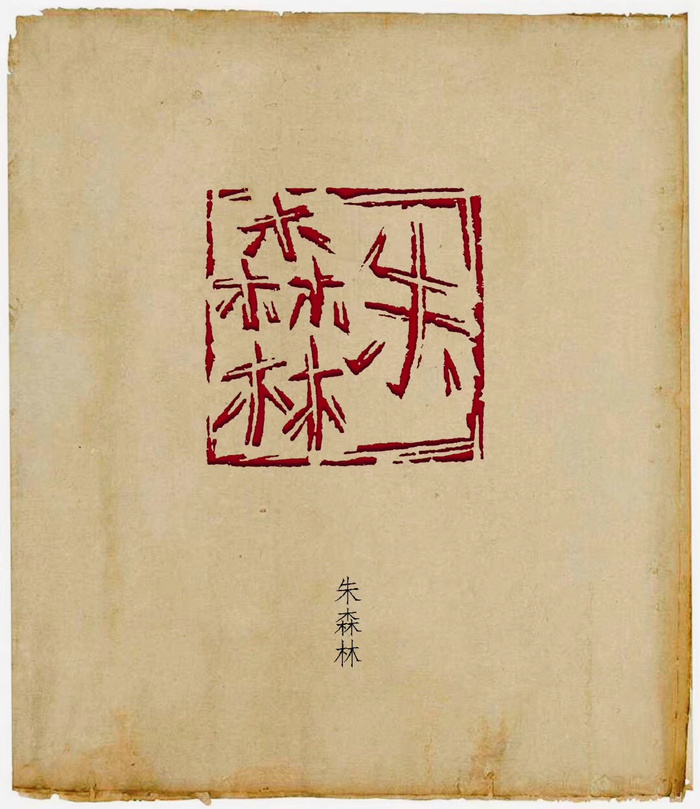 朱
森
林
朱森林